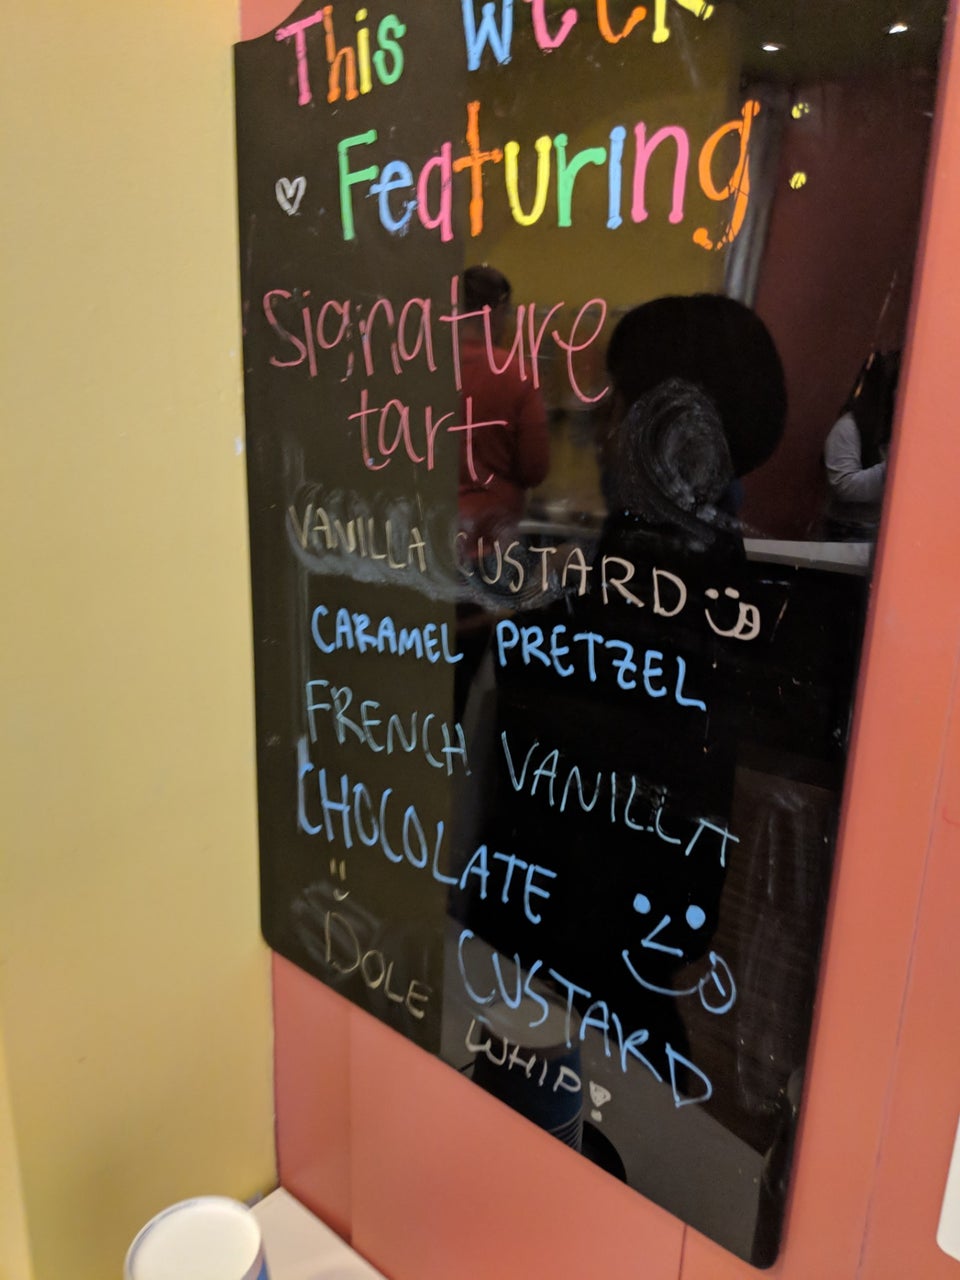 This Week
Featuring:
signature
tart
VANILLA CUSTARD
CARAMEL PRETZEL
FRENCH VANILLA
CHOCOLATE
CUSTARD
DOLE
WHIP!